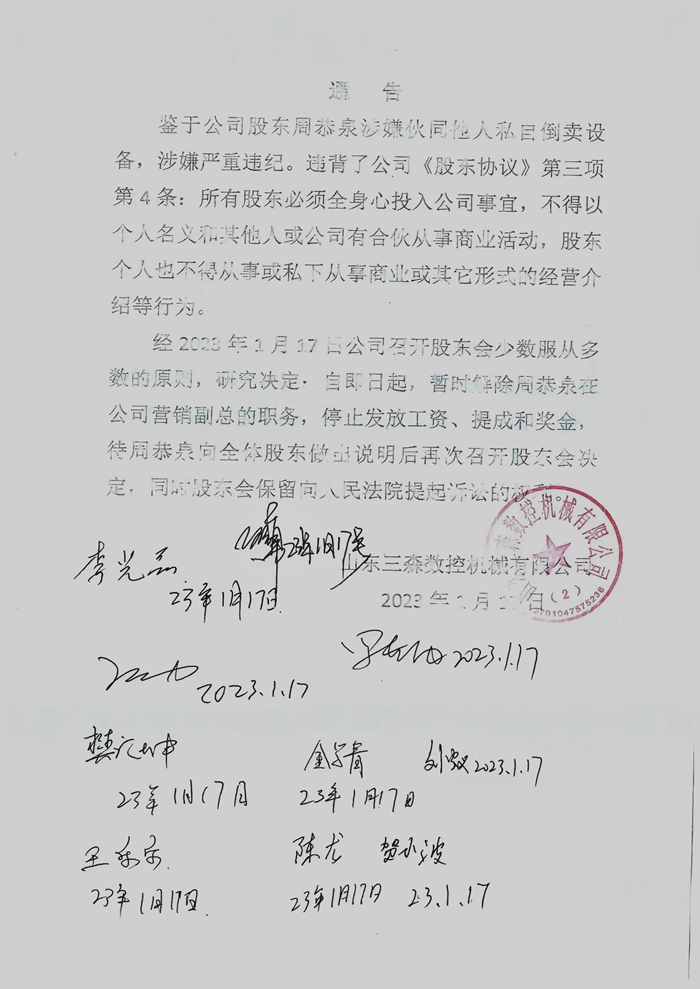 通 告
鉴于公司股东周恭泉涉嫌伙同他人私自倒卖设
备，涉嫌严重违纪。违背了公司《股东协议》第三项
第4条：所有股东必须全身心投入公司事宜，不得以
个人名义和其他人或公司有合伙从事商业活动，股东
个人也不得从事或私下从事商业或其它形式的经营介
绍等行为。
经 2023 年 1 月 17 日公司召开股东会少数服从多
数的原则，研究决定：自即日起，暂时解除周恭泉在
公司营销副总的职务，停止发放工资、提成和奖金，
待周恭泉向全体股东做出说明后再次召开股东会决
定，同时股东会保留向人民法院提起诉讼的权利
山东三森数控机械有限公司
2023 年 1 月 1 日
数控机械有限公司
（2）
3701047575236
李光
23年1月17日
2023.1.17
2023.1.17
樊
23年1月17日
23年1月17日
刘 2023.1.17
王
23年1月17日
陈龙
23年1月17日
贺小波
23.1.17